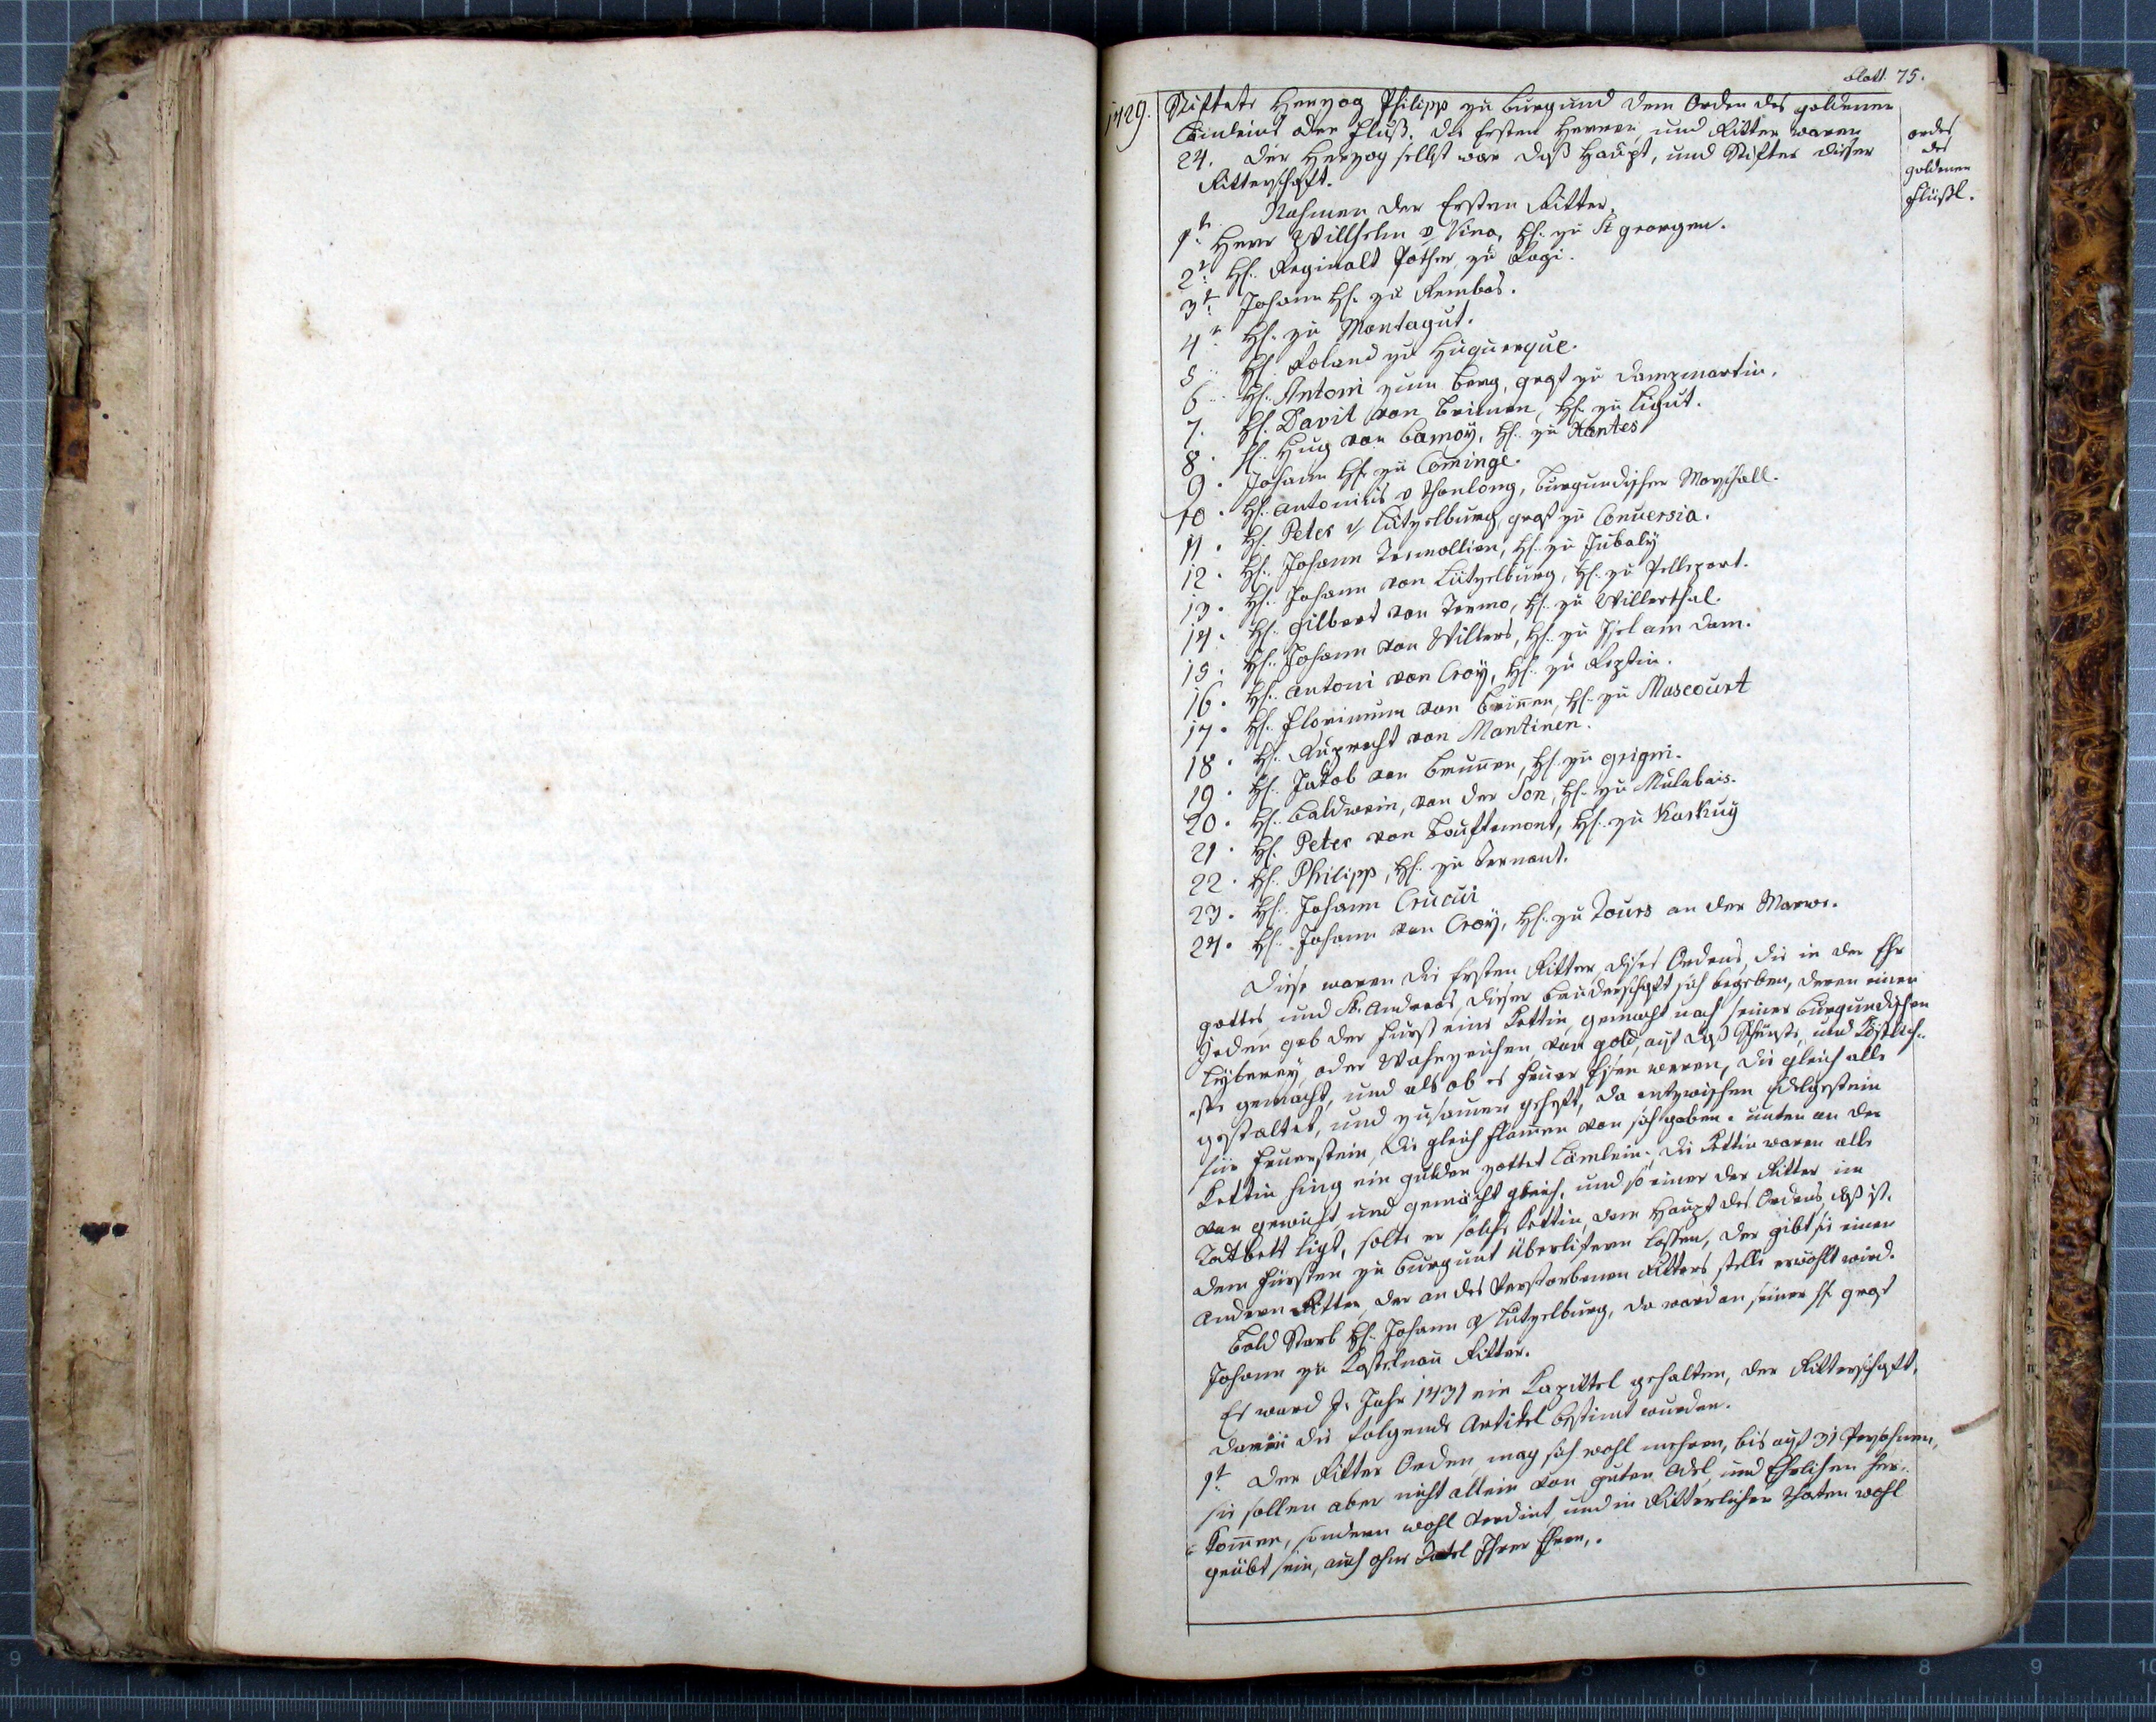 blatt 75.
1429. Stiftete Herzog Philipp zu Burgund dem Orden des goldenen
oder Fluß. die Ersten Herren und Ritter waren
24. der Herzog sellbst war daß Haupt, und Stifter diser
Ritterschaft.
orden
des
goldenen
Flüßl.
Nahmen der Ersten Ritter.
1t. Herr Willhelm v Vina, H: zu St georgen.
2t. H: Reginalt Pother, zu Rogi.
3t. Johann H: zu Rembas.
4t. H: zu Montagut.
5.. H: Roland zu Huguerque.
6.. H: Antoni zum Berg, graf zu Dampmartin.
7. H: Davit von Brimen, H: zu Ligut.
8. H: Hug von Camoÿ, H: zu Xantes
9. Johann H: zu Cominge.
10. H: Antonius v Thonlong, burgundischer Marschall.
11. H: Peter v Lützelburg, graf zu Conversia.
12. H: Johann Termollien, H: zu Jubalÿ
13. H: Johann von Lützelburg, H: zu Pelleport.
14. H: Gilbert von Termo, H: zu Villerthal.
15. H: Johann von Villers, H: zu Isel am dam.
16. H: Antoni von Croÿ, H: zu Reptin.
17. H: Florimum von Brimen, H: zu Mascourt
18. H: Ruprecht von Mantinen.
19. H: Jakob von Brunen, H: zu grigni.
20. H: Baldwein, von der Son, H: zu Mulabais.
21. H: Peter von Bouftemont, H: zu Karkuÿ
22. H: Philipp, H: zu Ternant.
23. H: Johann Crucui
24. H: Johann von Croÿ, H: zu Tours an der Marne.
Diese waren die Ersten Ritter dises Ordens, die in der Ehr
gottes und St. Andreas, diser Bruderschaft sich begeben, deren einen
Jeden gab der Fürst eine Kettin, gemacht nach seiner Burgundischen
Lyberey, oder Wahrzeichen, von gold, auf daß Schönste, und Köstlich-
-ste gemacht, und als ob es Feuer Eisen weren, die gleich alle
gestaltet, und zusamen gehefft, da entzwischen Edelgestein
für Feuerstein, die gleich flamen von sich gaben. unten an der
Kettin hing ein gulden zottet Lämlein. die Kettin waren alle
von gewicht und gemächt gleich, und so einer der Ritter im
Todtbett ligt, solte er solche Kettin, dem Haupt des Ordens, daß ist,
dem Fürsten zu Burgunt überlifern lassen, der gibt sie einen
andern Ritter, der an des Verstorbenen Ritters stelle erwöhlt wird.
Bald Starb H: Johann v Lützelburg, da ward an seiner st graf
Johann zu Kastelnau Ritter.
Es ward J. Jahr 1431 ein Kapittel gehalten, der Ritterschaft,
darein die folgende Artikel bestimt wurden.
1t. Der Ritter Orden mag sich wohl mehren, bis auf 31 Persohnen,
sie sollen aber nicht allein von guten Adel, und Ehrlichen her-
-komen, sondern wohl verdint, und in Ritterlichen thaten wohl
geübt sein, auch ohne Tadel Ihrer Ehren,.